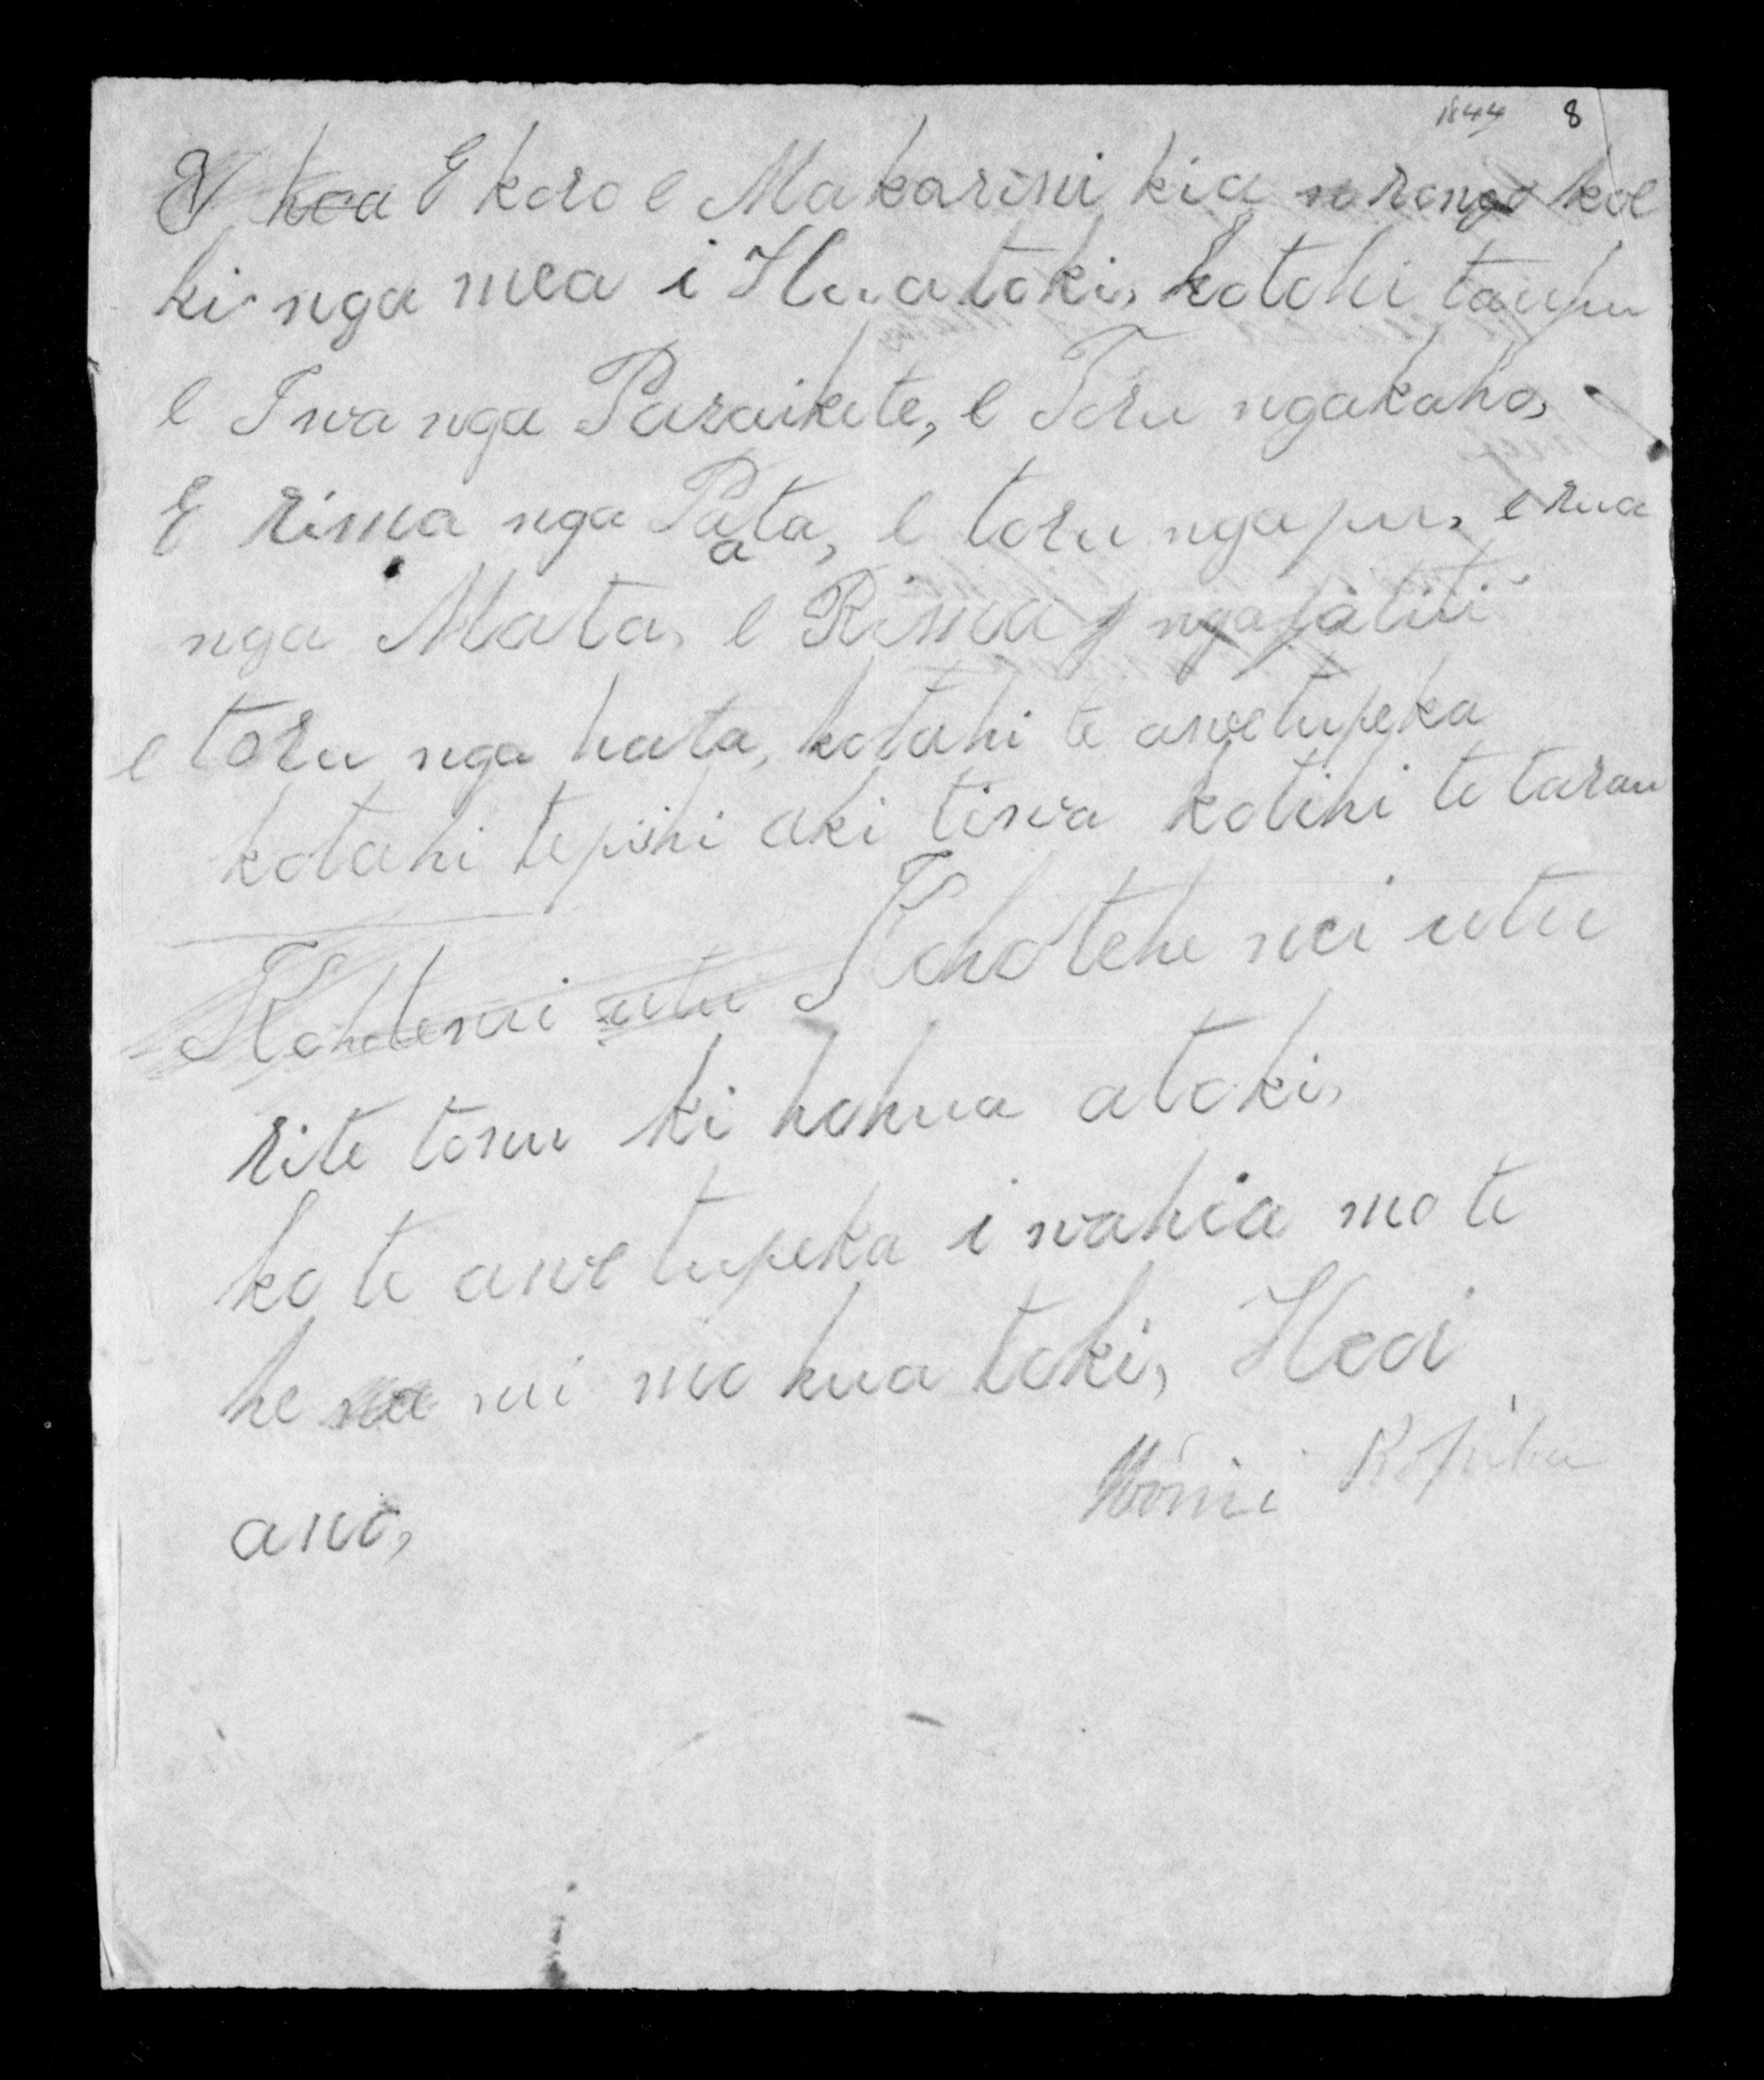 1844 8
E hoa E koro e Makarini kia rongo koe
ki nga mea i Huatoki, kotahi taupu
e Iwa nga Paraikete, e Toru ngakaho,
E rima nga Paata, e toru ngapu, e rua
nga Mata, e Rima ngapatiti
e toru nga hata, kotahi te awetupeka
kotahi tepihi aki tiwa kotihi te tarau
Kohotehe nei utu
rite tonu ki hohua atoki,
ko te awe tupeka i wahia mo te
he nui mo hua toki, Heoi
ano,